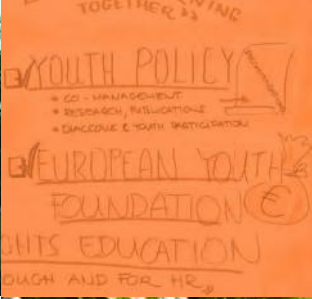 TOGETHER"
YOUTH POLICY
• CO-MANAGEMENT
• RESEARCH, PUBLICATIONS
• DIALOGUE & YOUTH PARTICIPATION
EUROPEAN YOUTH
FOUNDATION €
GHTS EDUCATION
OUGH AND FOR HR"